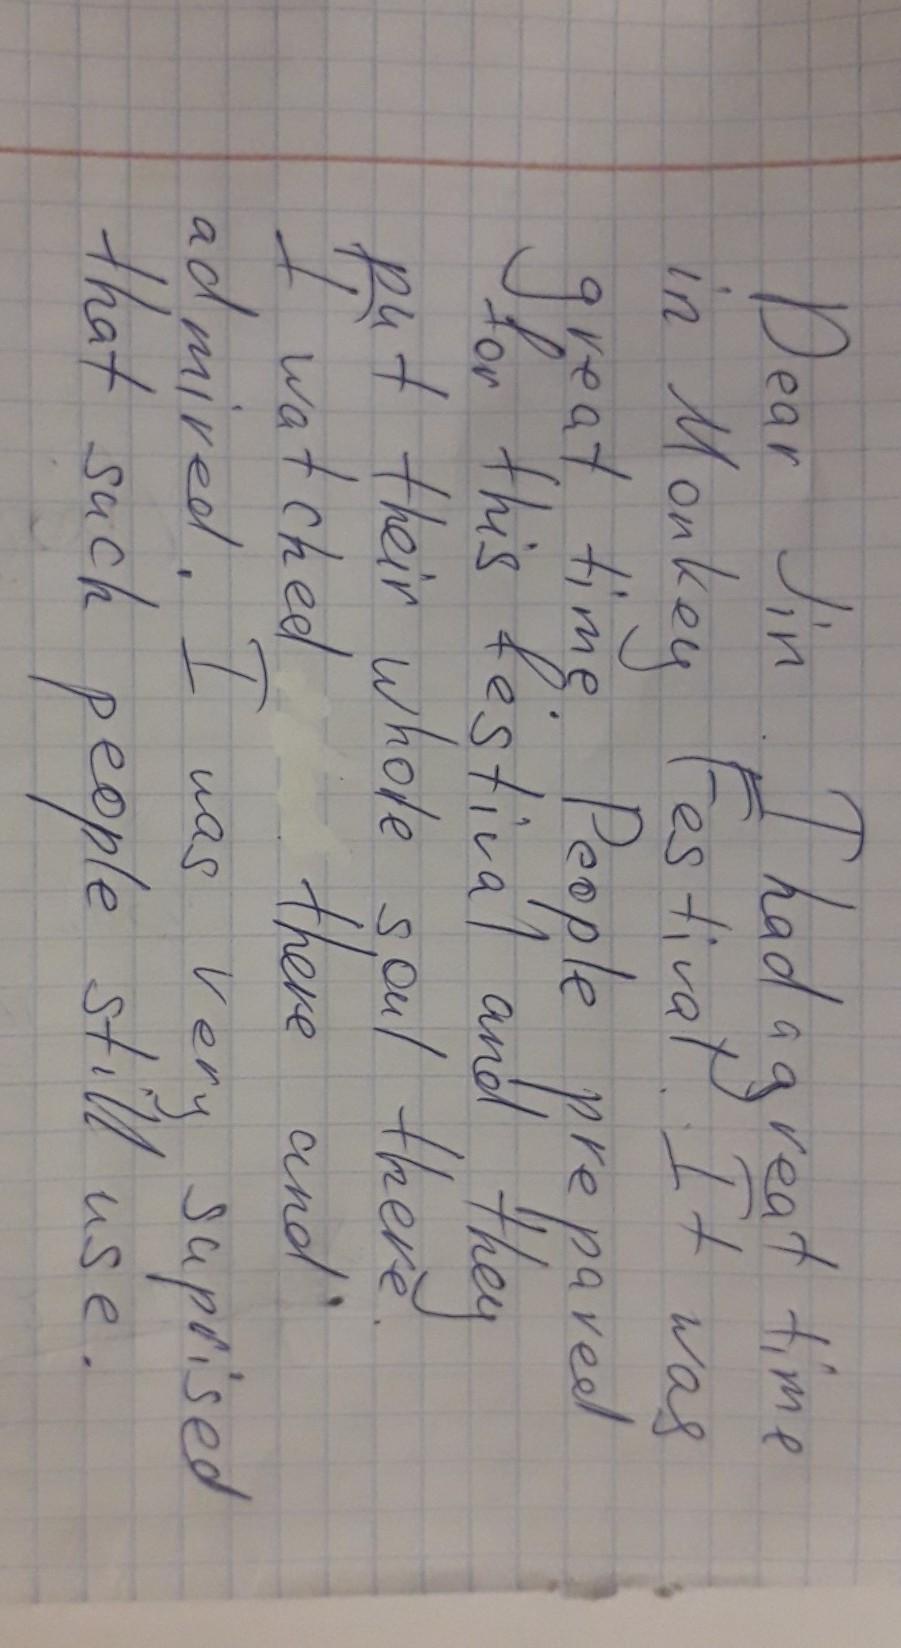 Dear Jin. I had a great time
in Monkey Festival. It was
great time. People prepared
for this festival and they
put their whole soul there.
I watched there and
admired. I was very suprised
that such people still use.